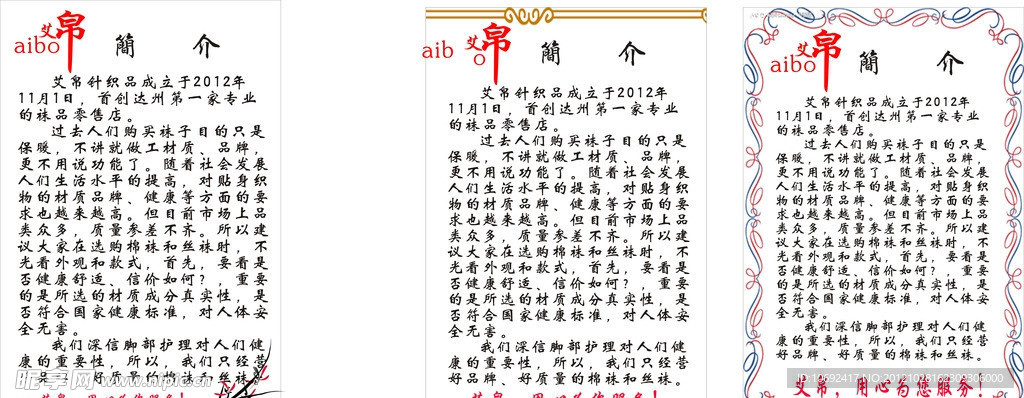 艾帛
aibo
簡 介
艾帛针织品成立于2012年
11月1日，首创达州第一家专业
的袜品零售店。
过去人们购买袜子目的只是
保暖，不讲就做工材质、品牌，
更不用说功能了。随着社会发展
人们生活水平的提高，对贴身织
物的材质品牌、健康等方面的要
求也越来越高。但目前市场上品
类众多，质量参差不齐。所以建
议大家在选购棉袜和丝袜时，不
光看外观和款式，首先，要看是
否健康舒适、信价如何？，重要
的是所选的材质成分真实性，是
否符合国家健康标准，对人体安
全无害。
我们深信脚部护理对人们健
康的重要性，所以，我们只经营
好品牌、好质量的棉袜和丝袜。
昵享网 www.nipic.cn
艾帛
aibo
簡 介
艾帛针织品成立于2012年
11月1日，首创达州第一家专业
的袜品零售店。
过去人们购买袜子目的只是
保暖，不讲就做工材质、品牌，
更不用说功能了。随着社会发展
人们生活水平的提高，对贴身织
物的材质品牌、健康等方面的要
求也越来越高。但目前市场上品
类众多，质量参差不齐。所以建
议大家在选购棉袜和丝袜时，不
光看外观和款式，首先，要看是
否健康舒适、信价如何？，重要
的是所选的材质成分真实性，是
否符合国家健康标准，对人体安
全无害。
我们深信脚部护理对人们健
康的重要性，所以，我们只经营
好品牌、好质量的棉袜和丝袜。
艾帛
aibo
簡 介
艾帛针织品成立于2012年
11月1日，首创达州第一家专业
的袜品零售店。
过去人们购买袜子目的只是
保暖，不讲就做工材质、品牌，
更不用说功能了。随着社会发展
人们生活水平的提高，对贴身织
物的材质品牌、健康等方面的要
求也越来越高。但目前市场上品
类众多，质量参差不齐。所以建
议大家在选购棉袜和丝袜时，不
光看外观和款式，首先，要看是
否健康舒适、信价如何？，重要
的是所选的材质成分真实性，是
否符合国家健康标准，对人体安
全无害。
我们深信脚部护理对人们健
康的重要性，所以，我们只经营
好品牌、好质量的棉袜和丝袜。
艾帛，用心为您服务！